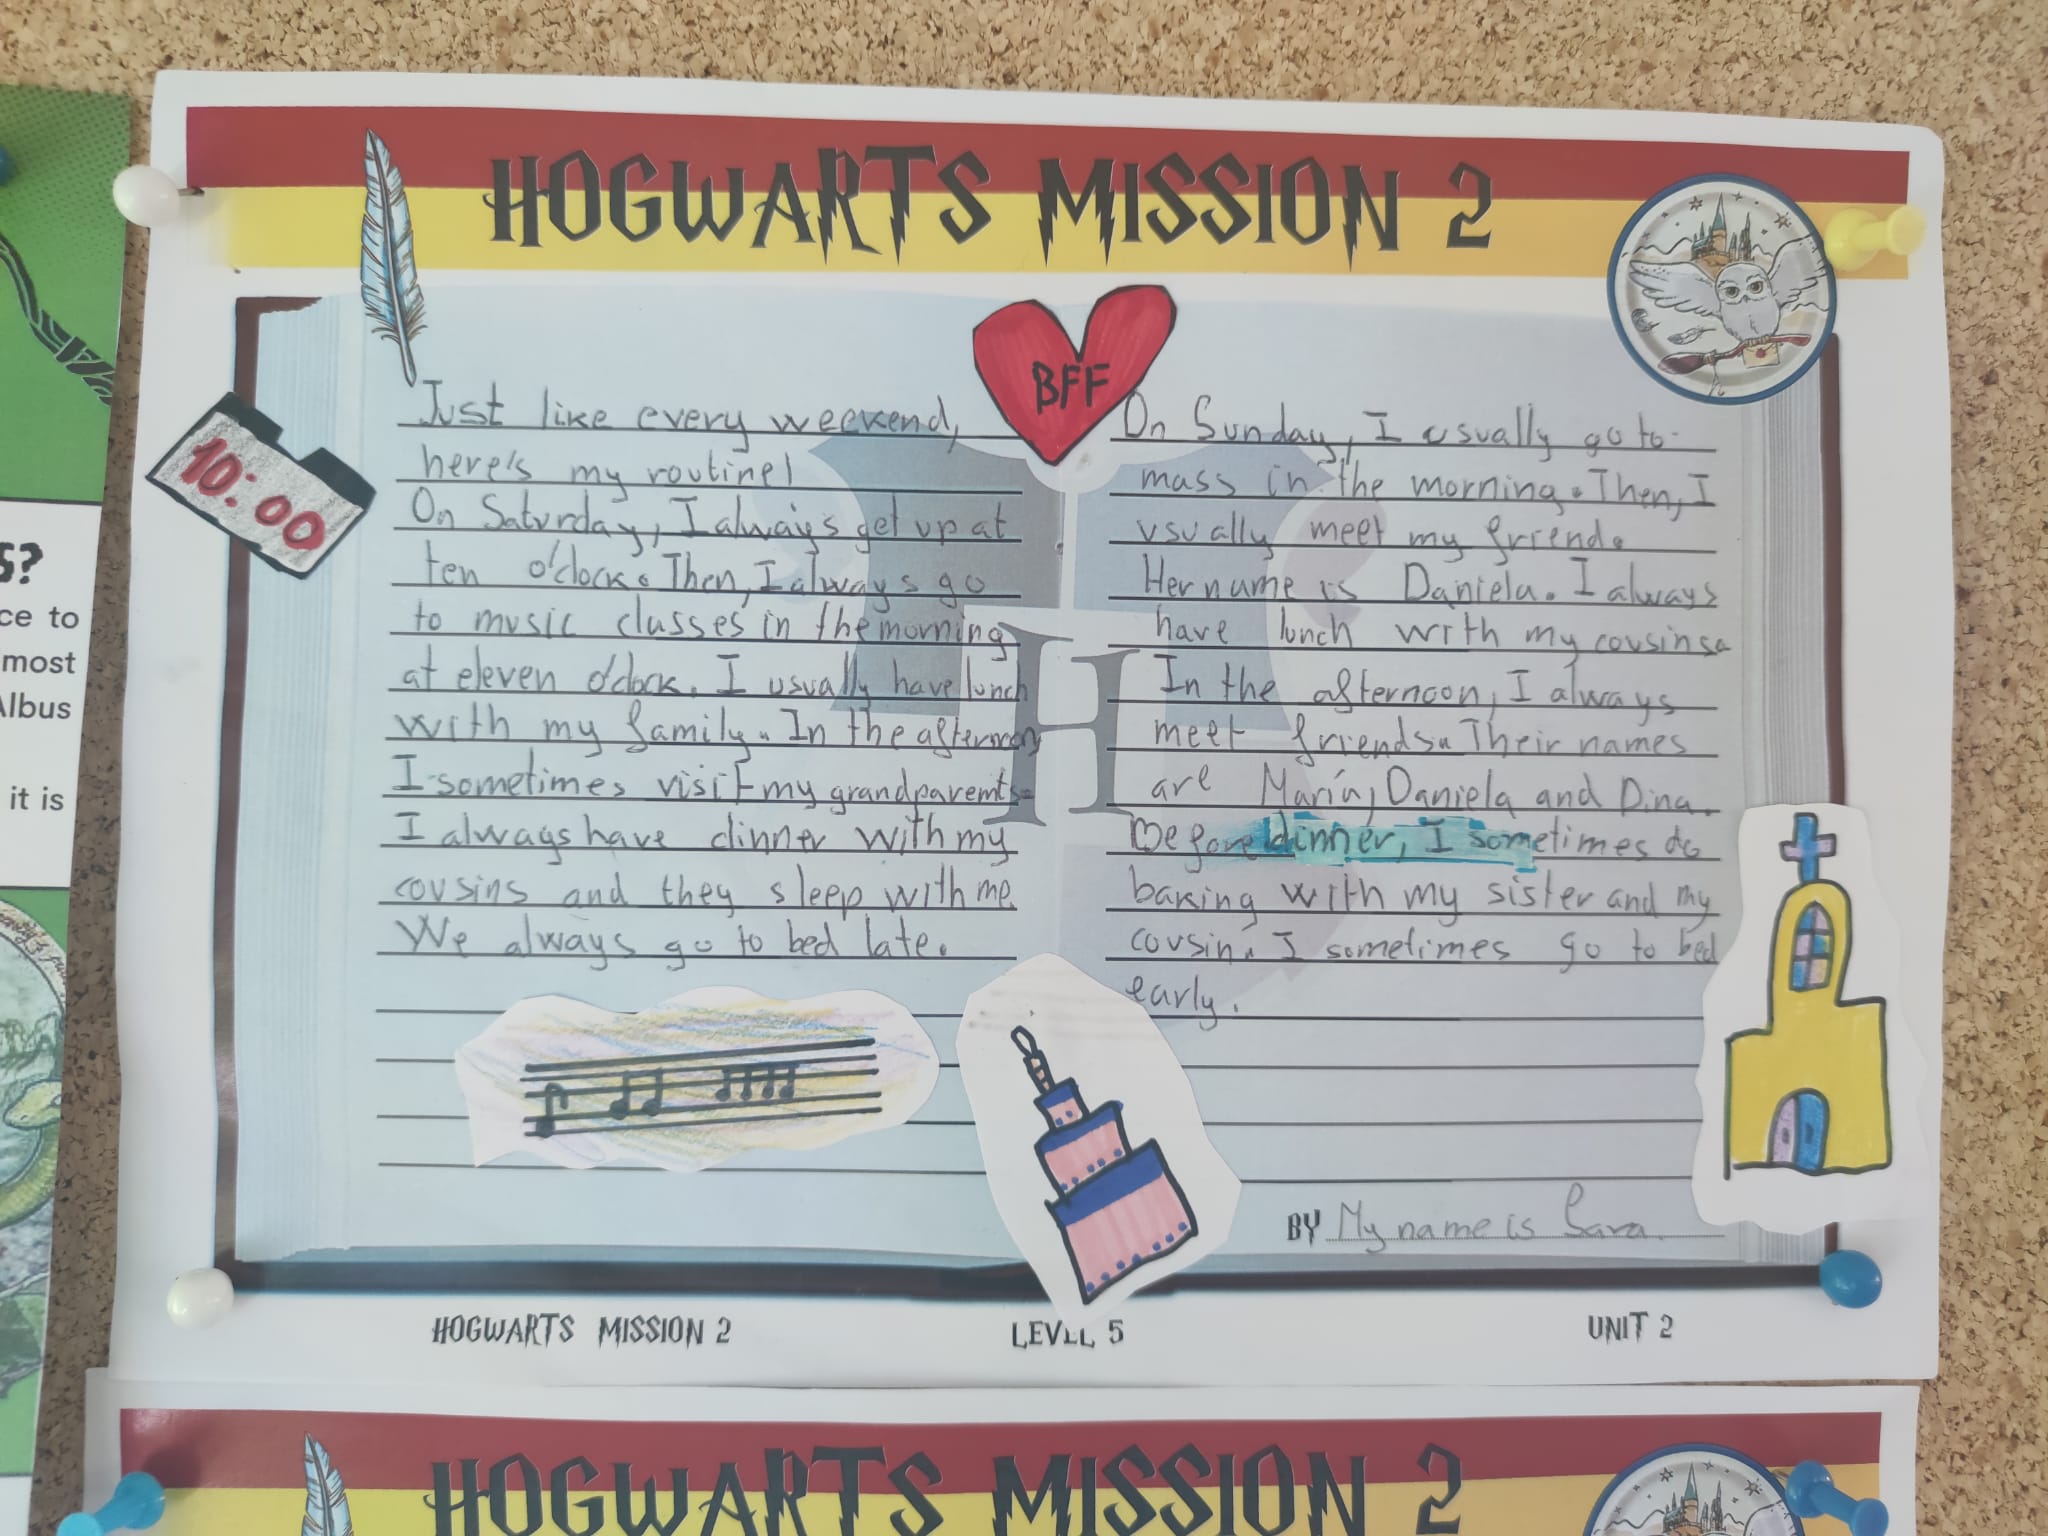 HOGWARTS MISSION 2
BFF
10:00
Just like every weekend,
here's my routine!
On Saturday, I always get up at
ten o'clock. Then, I always go
to music classes in the morning
at eleven o'clock. I usually have lunch
with my family. In the afternoon,
I sometimes visit my grandparents.
I always have dinner with my
cousins and they sleep with me.
We always go to bed late.
On Sunday, I usually go to
mass in the morning. Then, I
usually meet my friend.
Her name is Daniela. I always
have lunch with my cousins.
In the afternoon, I always
meet friends. Their names
are María, Daniela and Dina.
Before dinner, I sometimes do
baking with my sister and my
cousin. I sometimes go to bed
early.
BY My name is Sara.
HOGWARTS MISSION 2
LEVEL 5
UNIT 2
S?
ce to
most
Albus
it is
HOGWARTS MISSION 2